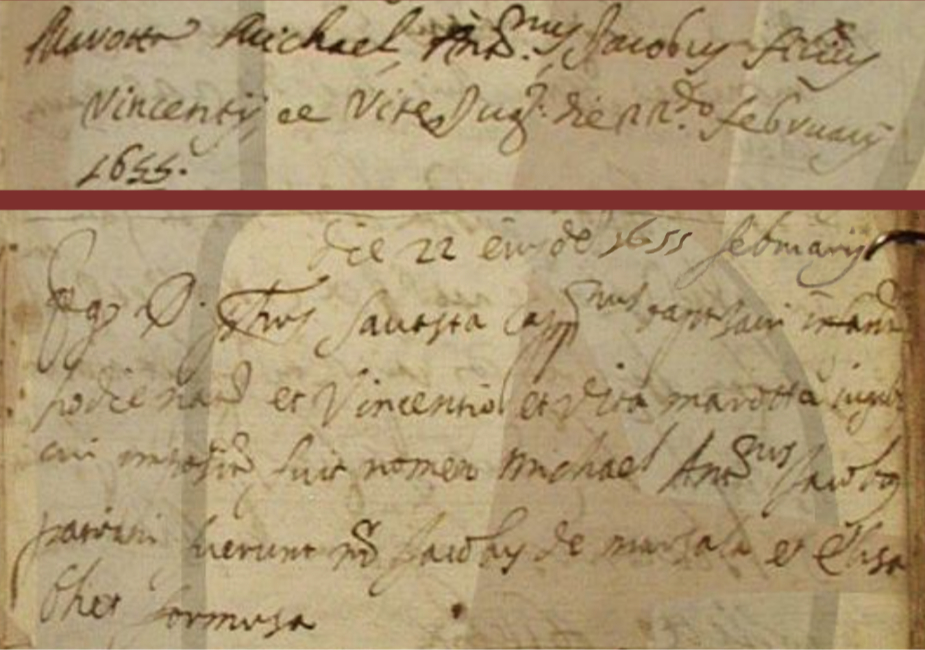 Marotta Michael Ant.nus Jacobus filius
Vincentij et Vite Jug. die 22.do februarij
1655.
die 22 eiusde 1655 februarij
Ego D. Thos Sautsta Capp.nus baptizavi infante
hodie natu et Vincentio et Vita marotta iugu
cui impositu fuit nomen Michael Ant.nus Jacobus
patrini fuerunt m.o Jacobus de marsala et Elisa
bhet formusa